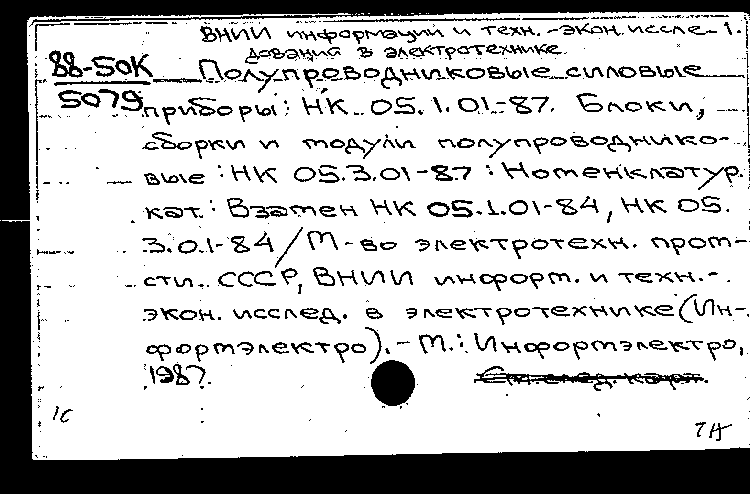 ВНИИ информации и техн.-экон. иссле- 1.
дования в электротехнике.
88-50К Полупроводниковые силовые
5079 приборы: НК 05.1.01-87. Блоки,
сборки и модули полупроводнико-
вые: НК 05.3.01-87: Номенклатур.
кат.: Взамен НК 05.1.01-84, НК 05.
3.01-84/М-во электротехн. пром-
сти. СССР, ВНИИ информ. и техн.-
экон. исслед. в электротехнике (Ин-
формэлектро).- М.: Информэлектро,
1987.
См. след. карт.
1С